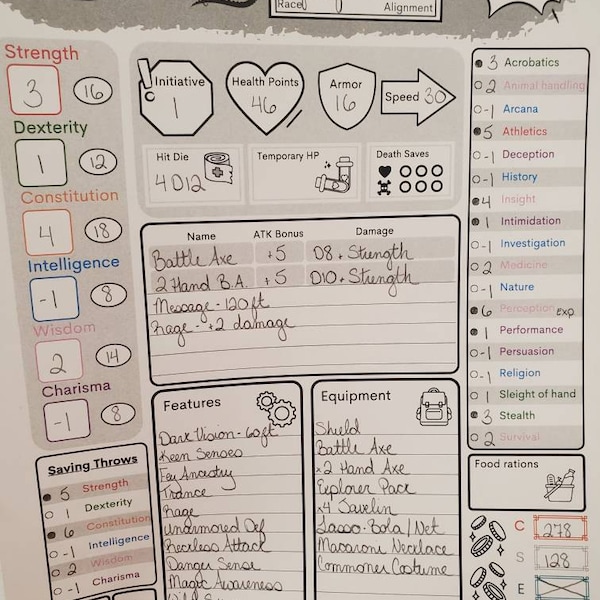 Race
Alignment
Strength
3 16
Dexterity
1 12
Constitution
4 18
Intelligence
-1 8
Wisdom
2 14
Charisma
-1 8
Saving Throws
5 Strength
1 Dexterity
6 Constitution
-1 Intelligence
2 Wisdom
-1 Charisma
Initiative
1
Health Points
46
Armor
16
Speed 30
Hit Die
4D12
Temporary HP
Death Saves
Name ATK Bonus Damage
Battle Axe +5 D8 + Strength
2 Hand B.A. +5 D10 + Strength
Message - 120 ft
Rage - +2 damage
Features
Dark Vision - 60 ft
Keen Senses
Fey Ancestry
Trance
Rage
Unarmored Def
Reckless Attack
Danger Sense
Magic Awareness
Equipment
Shield
Battle Axe
x2 Hand Axe
Explorer Pack
x4 Javelin
Lasso-Bola/Net
Macaroni Necklace
Commoner Costume
3 Acrobatics
2 Animal handling
-1 Arcana
5 Athletics
-1 Deception
-1 History
4 Insight
1 Intimidation
-1 Investigation
2 Medicine
-1 Nature
6 Perception Exp
1 Performance
-1 Persuasion
-1 Religion
1 Sleight of hand
3 Stealth
2 Survival
Food rations
C 278
S 128
E